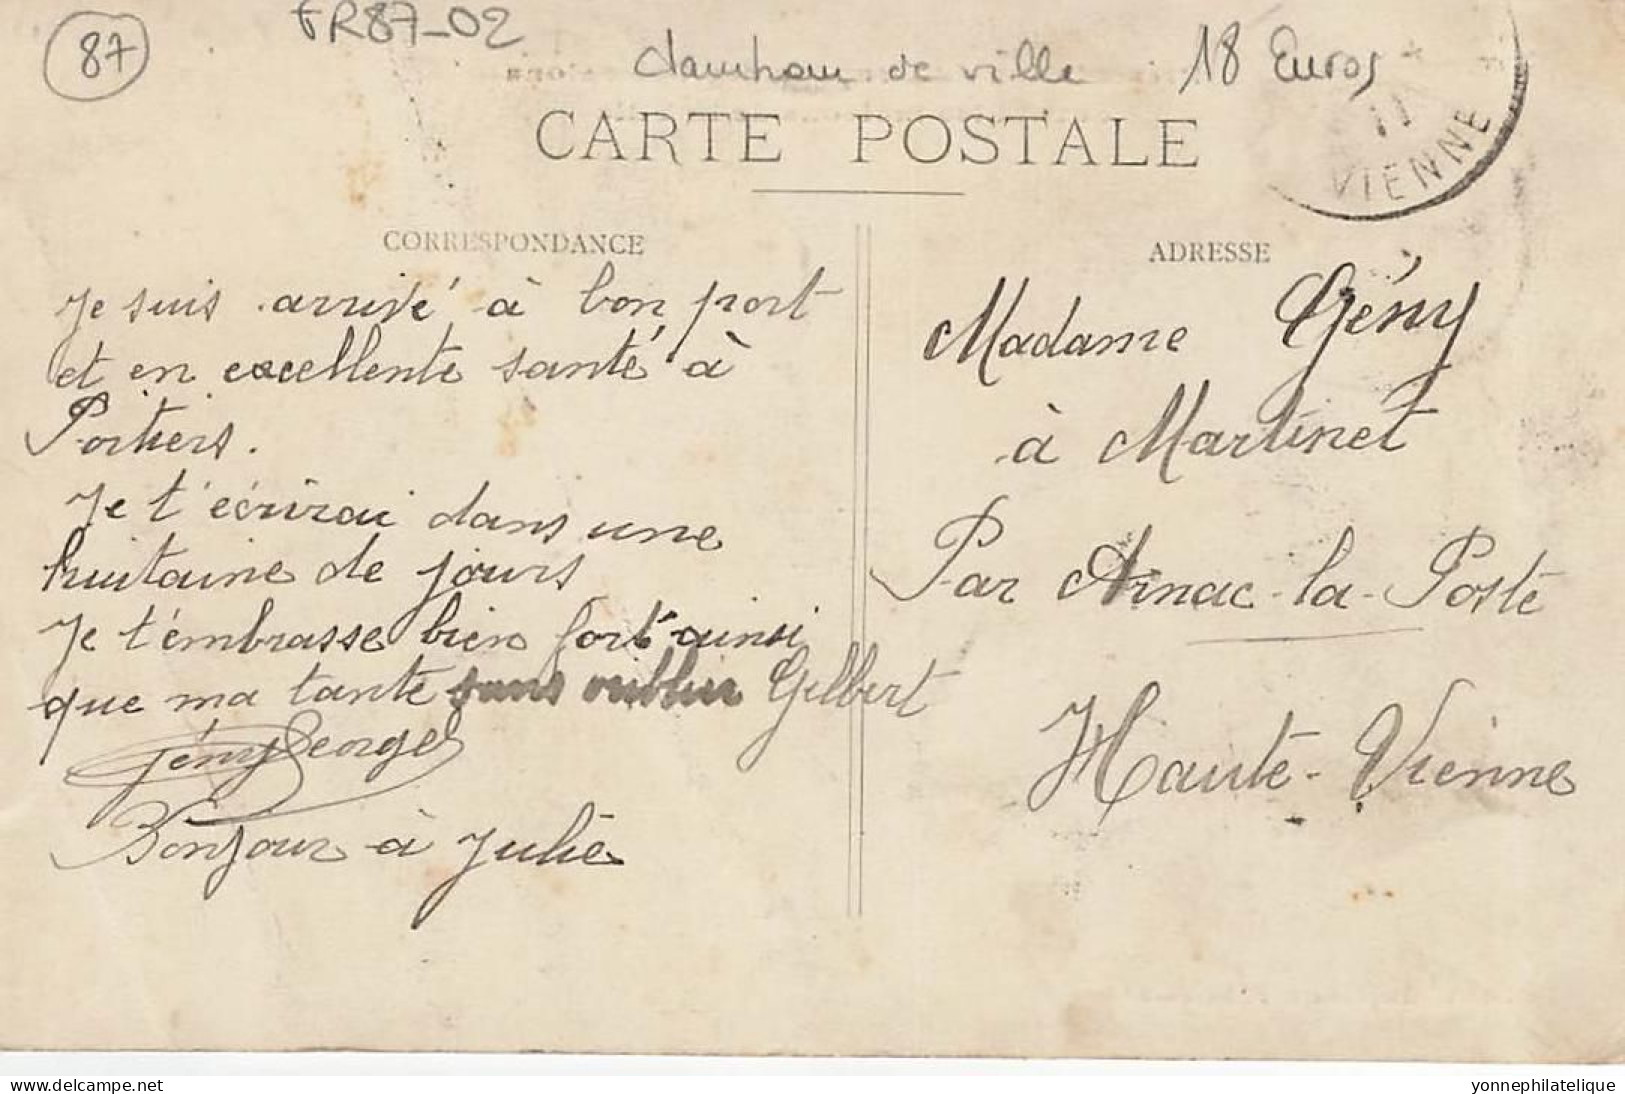 87
FR87-02
de ville
18 Euros
CARTE POSTALE
11
VIENNE
CORRESPONDANCE
Je suis arrivé à bon port
et en excellente santé à
Poitiers.
Je t'écrirai dans une
huitaine de jours
Je t'embrasse bien fort ainsi
que ma tante sans oublier Gilbert
Gény Georges
Bonjour à Julie
ADRESSE
Madame Gény
à Martinet
Par Arnac-la-Poste
Haute-Vienne
delcampe.net
yonnephilatelique